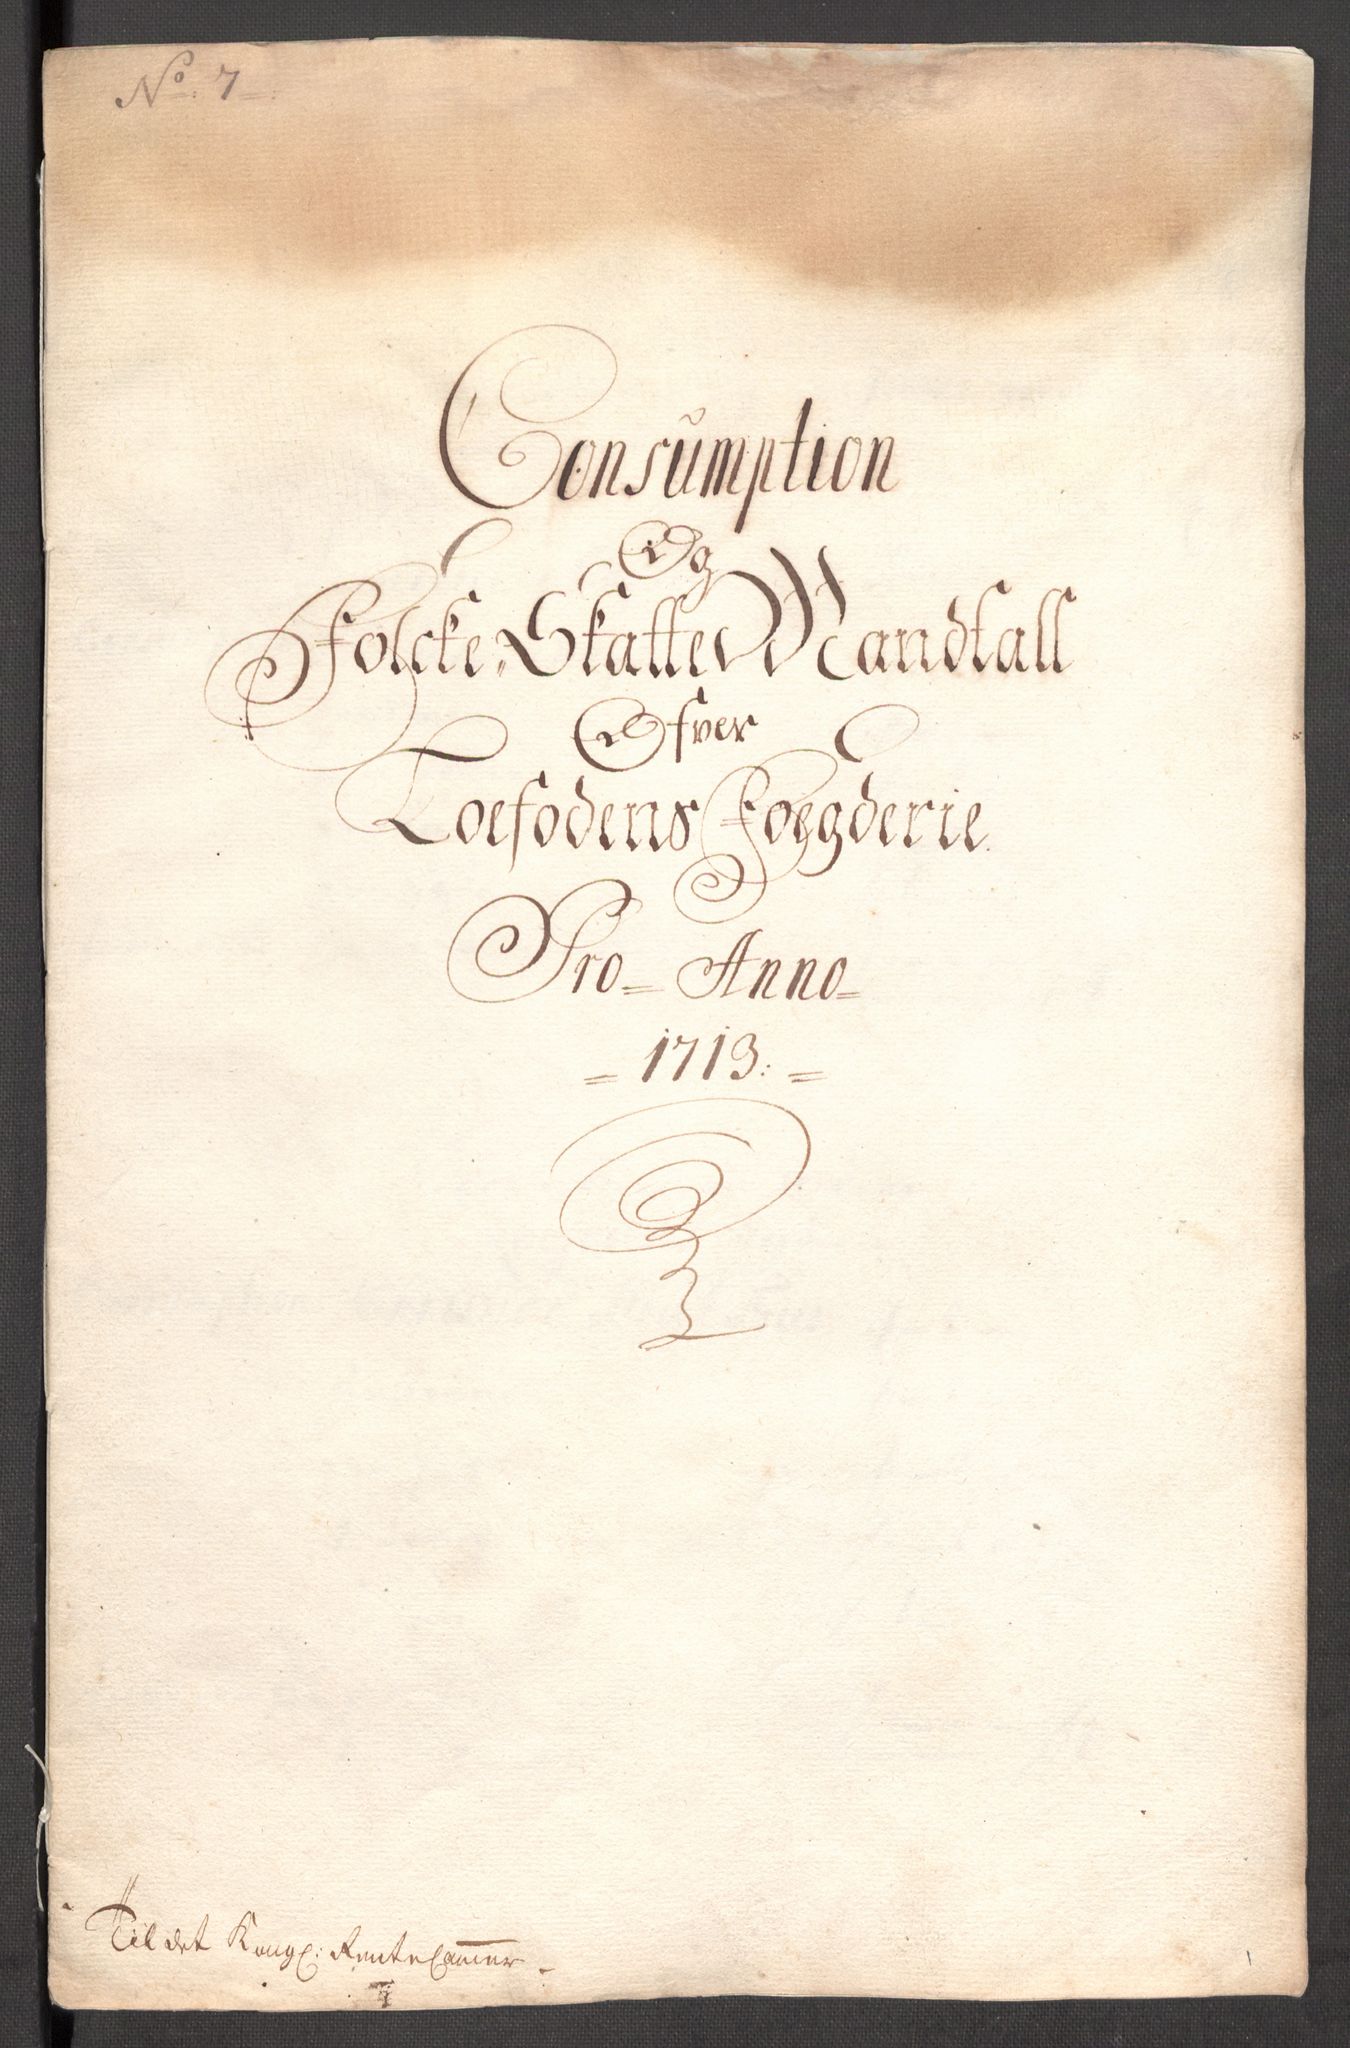 No. 7
Consumption
Og
Folcke-Skatte Mandtall
Ofver
Loefodens Foegderie
Pro= Anno=
= 1713. =
Til det Kongl: Rente Cammer
1